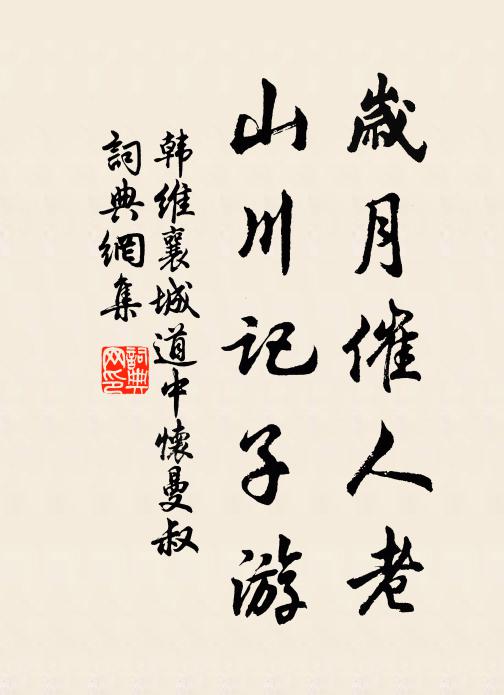 歲月催人老
山川記子游
韩維襄城道中懷曼叔
詞典網集
詞典
网印